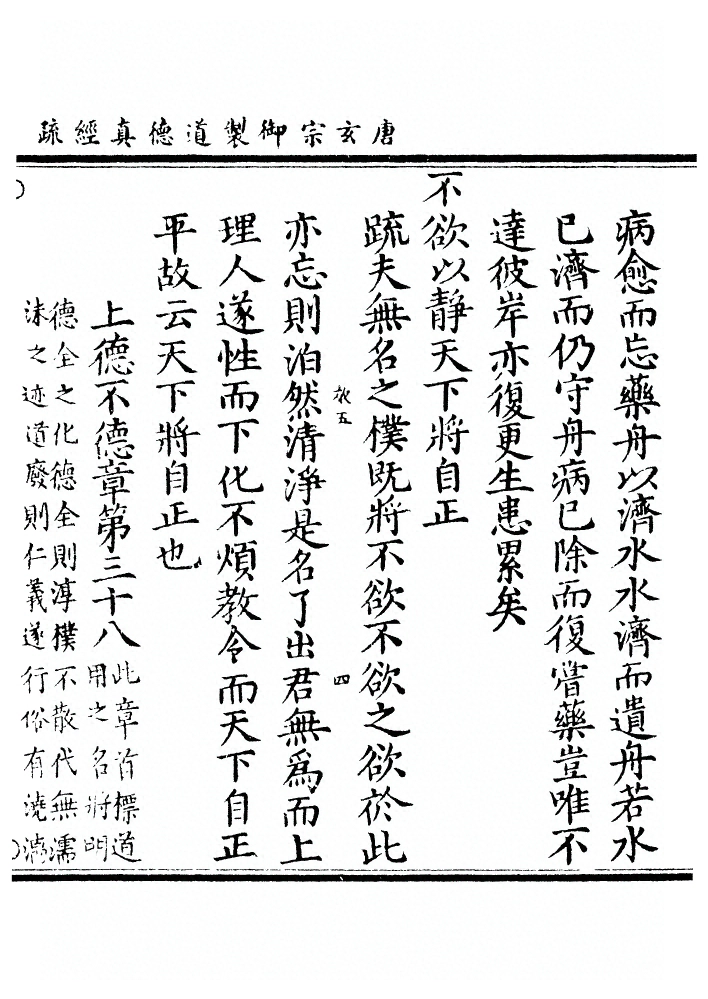 唐玄宗御製道德真經疏
病愈而忘藥舟以濟水水濟而遺舟若水
已濟而仍守舟病已除而復甞藥豈唯不
達彼岸亦復更生患累矣
不欲以靜天下將自正
疏夫無名之樸既將不欲不欲之欲於此
五 四
亦忘則泊然清淨是名了出君無爲而上
理人遂性而下化不煩教令而天下自正
平故云天下將自正也
上德不德章第三十八
此章首標道
用之名將明
德全之化德全則淳樸不散代無濡
沫之迹道廢則仁義遂行俗有澆漓